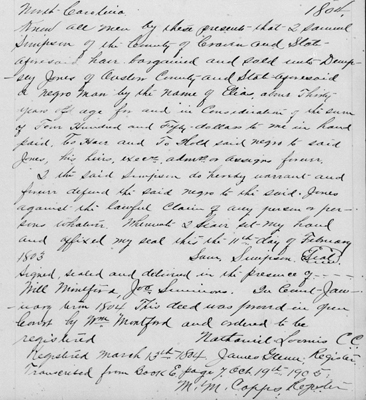 North Carolina 1804.
Know all men by these presents that I Samuel
Simpson of the County of Craven and State
aforesaid have bargained and sold unto Demp-
sey Jones of Carteret County and State aforesaid
a negro man by the name of Elias, about Thirty
years of age for and in Consideration of the sum
of Four Hundred and Fifty dollars to me in hand
paid. To Have and To Hold said negro to said
Jones, his heirs, execrs. admrs. or assigns forever.
I the said Simpson do hereby warrant and
forever defend the said negro to the said Jones
against the lawful Claim of any person or per-
sons whatever. Whereunto I have set my hand
and affixed my seal this the 11th day of February
1803 Sam. Simpson (Seal)
Signed, sealed and delivered in the presence of
Will Montford, Jos. Simmons. In Court Jan-
uary term 1804 This deed was proved in open
Court by Wm Montford and ordered to be
registered Nathaniel Loomis C.C.
Registered March 13th 1804. James Register
Transcribed from Book E, page 7 Oct 19th 1905
M. M. Capps Register